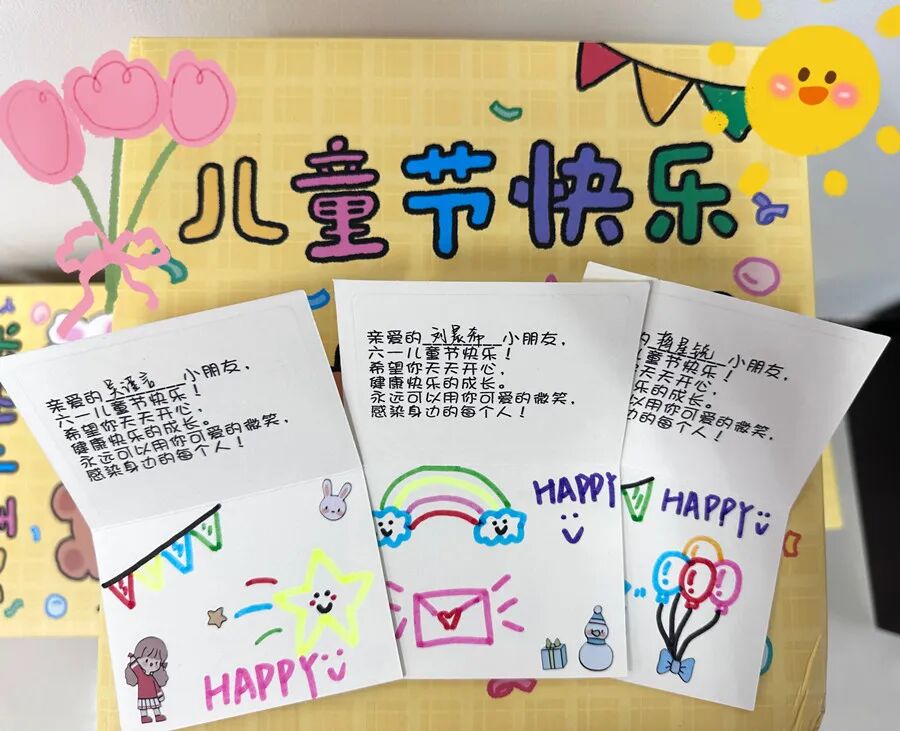 儿童节快乐
亲爱的 吴谨言 小朋友，
六一儿童节快乐！
希望你天天开心，
健康快乐的成长。
永远可以用你可爱的微笑，
感染身边的每个人！
HAPPY
亲爱的 刘景希 小朋友，
六一儿童节快乐！
希望你天天开心，
健康快乐的成长。
永远可以用你可爱的微笑，
感染身边的每个人！
HAPPY
的 小朋友，
儿童节快乐！
天天开心，
乐的成长。
以用你可爱的微笑，
边的每个人！
HAPPY